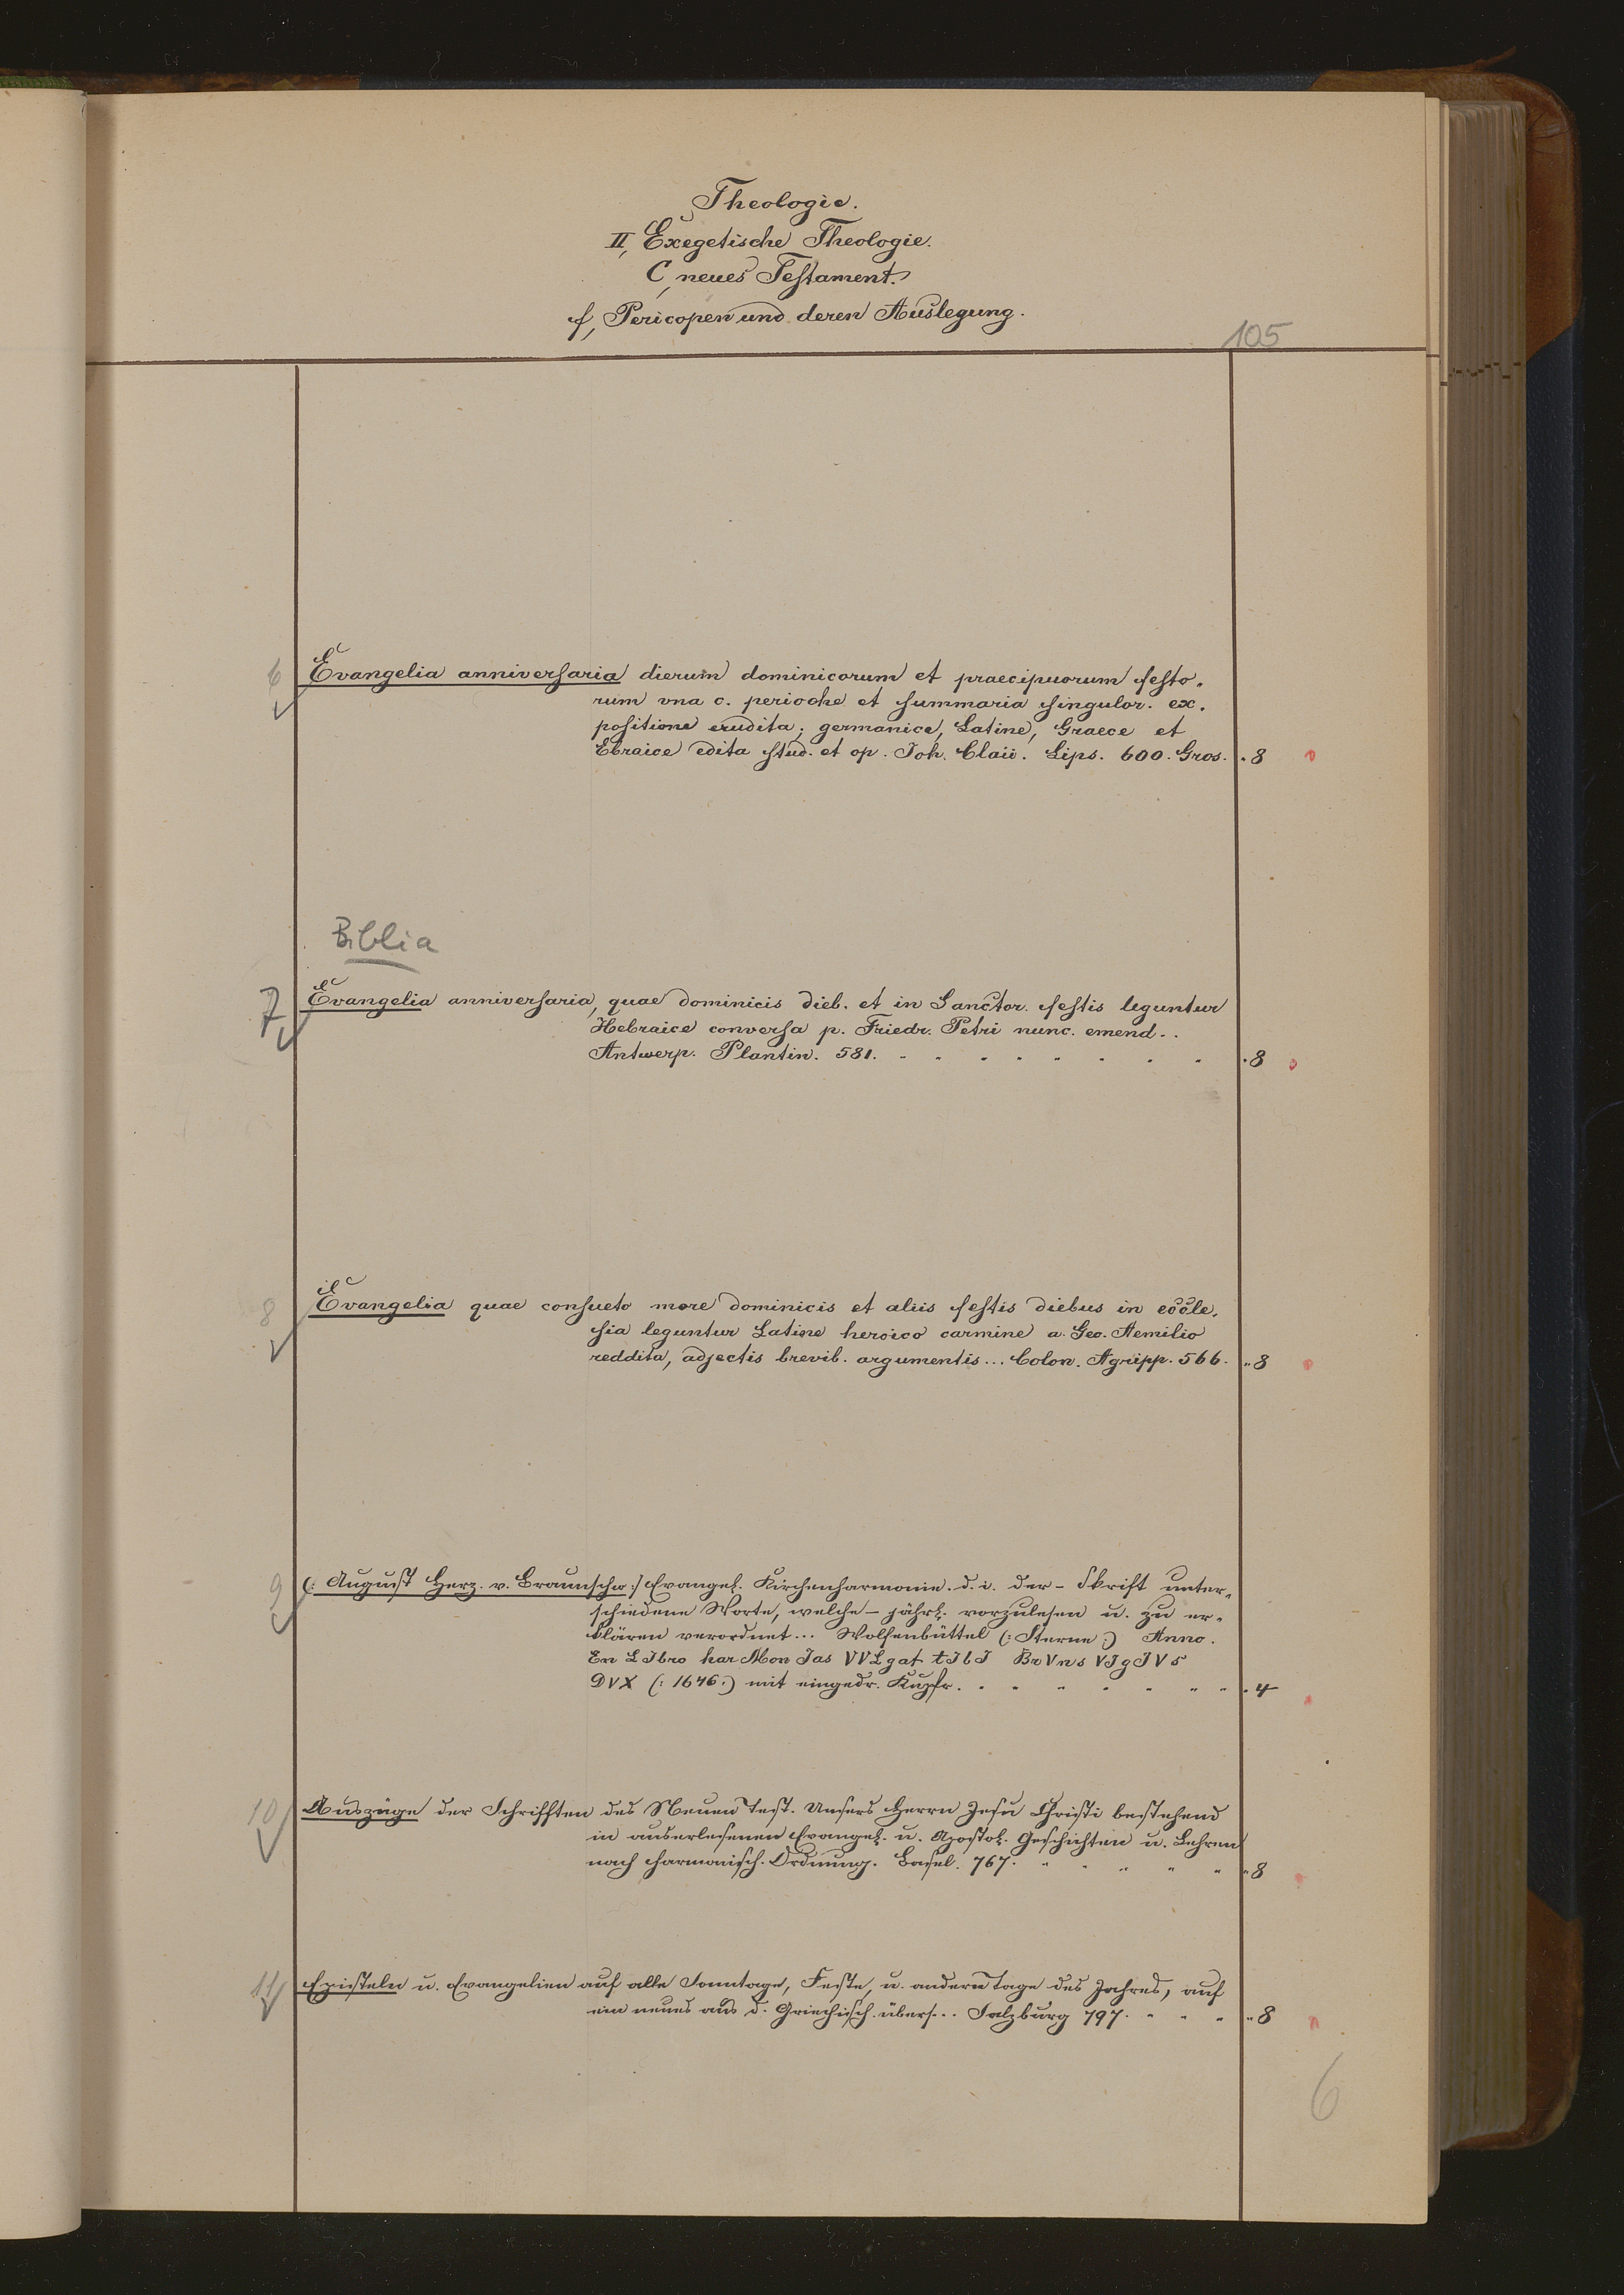 Theologie.
II, Exegetische Theologie.
C, neues Testament.
f, Pericopen und deren Auslegung.
105
6 Evangelia anniversaria dierum dominicorum et praecipuorum festo-
rum vna c. perioche et summaria singulor. ex-
positione erudita; germanice, Latine, Graece et
Ebraice edita stud. et op. Joh. Claii. Lips. 600. Gros. . 8
Biblia
7 Evangelia anniversaria, quae dominicis dieb. et in Sanctor. festis leguntur
Hebraice conversa p. Friedr. Petri nunc. emend..
Antwerp. Plantin. 581. . 8
8 Evangelia quae consueto more dominicis et aliis festis diebus in eccle-
sia leguntur Latine heroico carmine a. Geo. Aemilio
reddita, adjectis brevib. argumentis... Colon. Agripp. 566. . 8
9 (: August Herz. v. Braunschw :) Evangel. Kirchenharmonie. d. i. der - Skrift unter-
schiedene Worte, welche - jährl. vorzulesen u. zu er-
klären verordnet... Wolfenbüttel (: Sterne :) Anno.
En LIbro harMonIas VVLgat tIbI BrVnsVIgIVs
DVX (: 1646 :) mit eingedr. Kupfr. . 4
10 Auszüge der Schrifften des Neuen Test. Unsers Herrn Jesu Christi bestehend
in auserlesenen Evangel. u. Apostol. Geschichten u. Lehren
nach harmonisch. Ordnung. Basel. 767. . 8
11 Episteln u. Evangelien auf alle Sonntage, Feste, u. andern Tage des Jahres, auf
ein neues aus d. Griechisch. übers... Salzburg 797. . 8
6